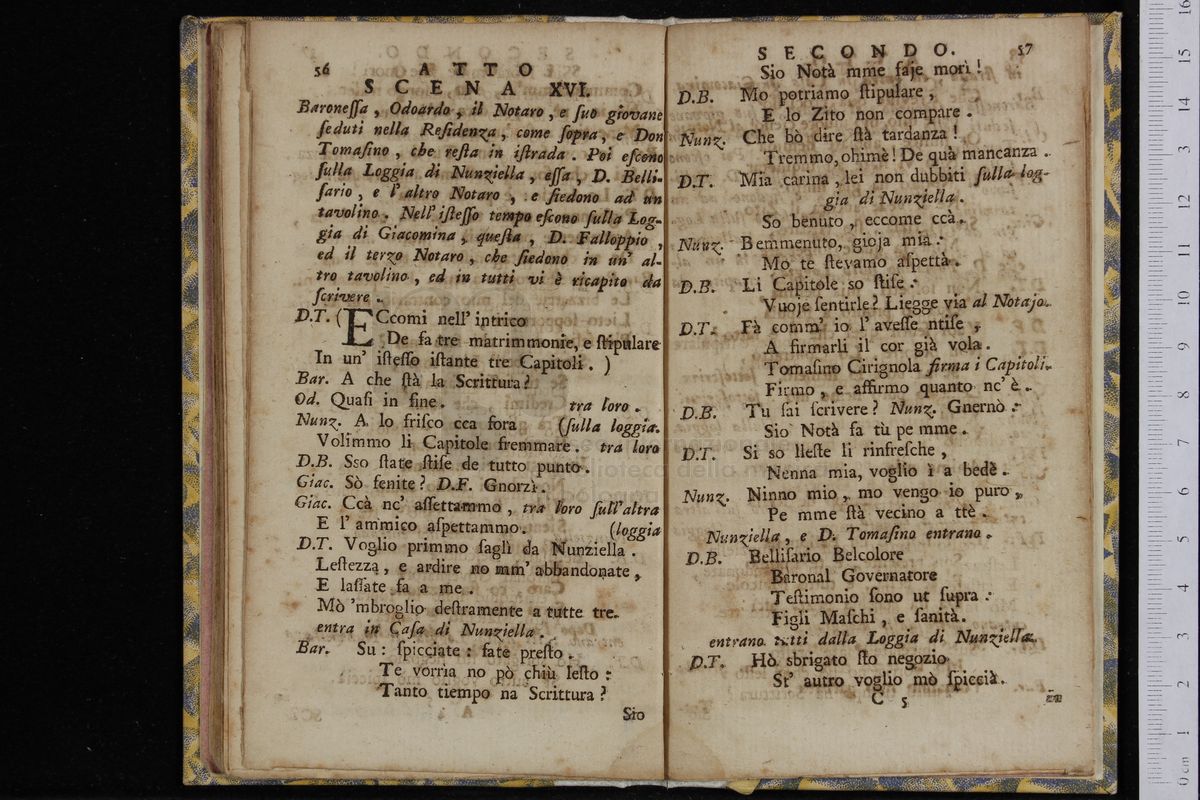 56 ATTO
SCENA XVI.
Baroneſſa, Odoardo, il Notaro, e ſuo giovane
ſeduti nella Reſidenza, come ſopra, e Don
Tomaſino, che reſta in iſtrada. Poi eſcono
ſulla Loggia di Nunziella, eſſa, D. Belli-
ſario, e l' altro Notaro, e ſiedono ad un
tavolino. Nell' iſteſſo tempo eſcono ſulla Log-
gia di Giacomina, queſta, D. Falloppio,
ed il terzo Notaro, che ſiedono in un' al-
tro tavolino, ed in tutti vi è ricapito da
ſcrivere.
D.T. (ECcomi nell' intrico
De fa tre matrimmonie, e ſtipulare
In un' iſteſſo iſtante tre Capitoli. )
Bar. A che ſtà la Scrittura?
Od. Quaſi in fine. tra loro.
Nunz. A lo friſco cca fora (ſulla loggia.
Volimmo li Capitole fremmare. tra loro
D.B. Sso ſtate ſtiſe de tutto punto.
Giac. Sò fenite? D.F. Gnorzì.
Giac. Ccà nc' aſſettammo, tra loro ſull'altra
E l' ammico aſpettammo. (loggia
D.T. Voglio primmo ſaglì da Nunziella.
Leſtezza, e ardire no mm' abbandonate,
E laſſate fa a me.
Mò 'mbroglio deſtramente a tutte tre.
entra in Caſa di Nunziella.
Bar. Su: ſpicciate: fate preſto.
Te vorria no pò chiù leſto:
Tanto tiempo na Scrittura?
Sio
SECONDO. 57
Sio Notà mme faje morì!
D.B. Mo potriamo ſtipulare,
E lo Zito non compare.
Nunz. Che bò dire ſtà tardanza!
Tremmo, ohimè! De quà mancanza.
D.T. Mia carina, lei non dubbiti ſulla log-
gia di Nunziella.
So benuto, eccome ccà.
Nunz. Bemmenuto, gioja mia:
Mo te ſtevamo aſpettà.
D.B. Li Capitole so ſtiſe:
Vuoje ſentirle? Liegge via al Notajo.
D.T. Fà comm' io l' aveſſe ntiſe,
A firmarli il cor già vola.
Tomaſino Cirignola firma i Capitoli.
Firmo, e affirmo quanto nc' è.
D.B. Tu ſai ſcrivere? Nunz. Gnernò:
Sio Notà fa tù pe mme.
D.T. Si so lleſte li rinfreſche,
Nenna mia, voglio ì a bedè.
Nunz. Ninno mio, mo vengo io puro,
Pe mme ſtà vecino a ttè.
Nunziella, e D. Tomaſino entrano.
D.B. Belliſario Belcolore
Baronal Governatore
Teſtimonio ſono ut ſupra:
Figli Maſchi, e ſanità.
entrano tutti dalla Loggia di Nunziella.
D.T. Hò sbrigato ſto negozio
St' autro voglio mò ſpiccià.
C 5